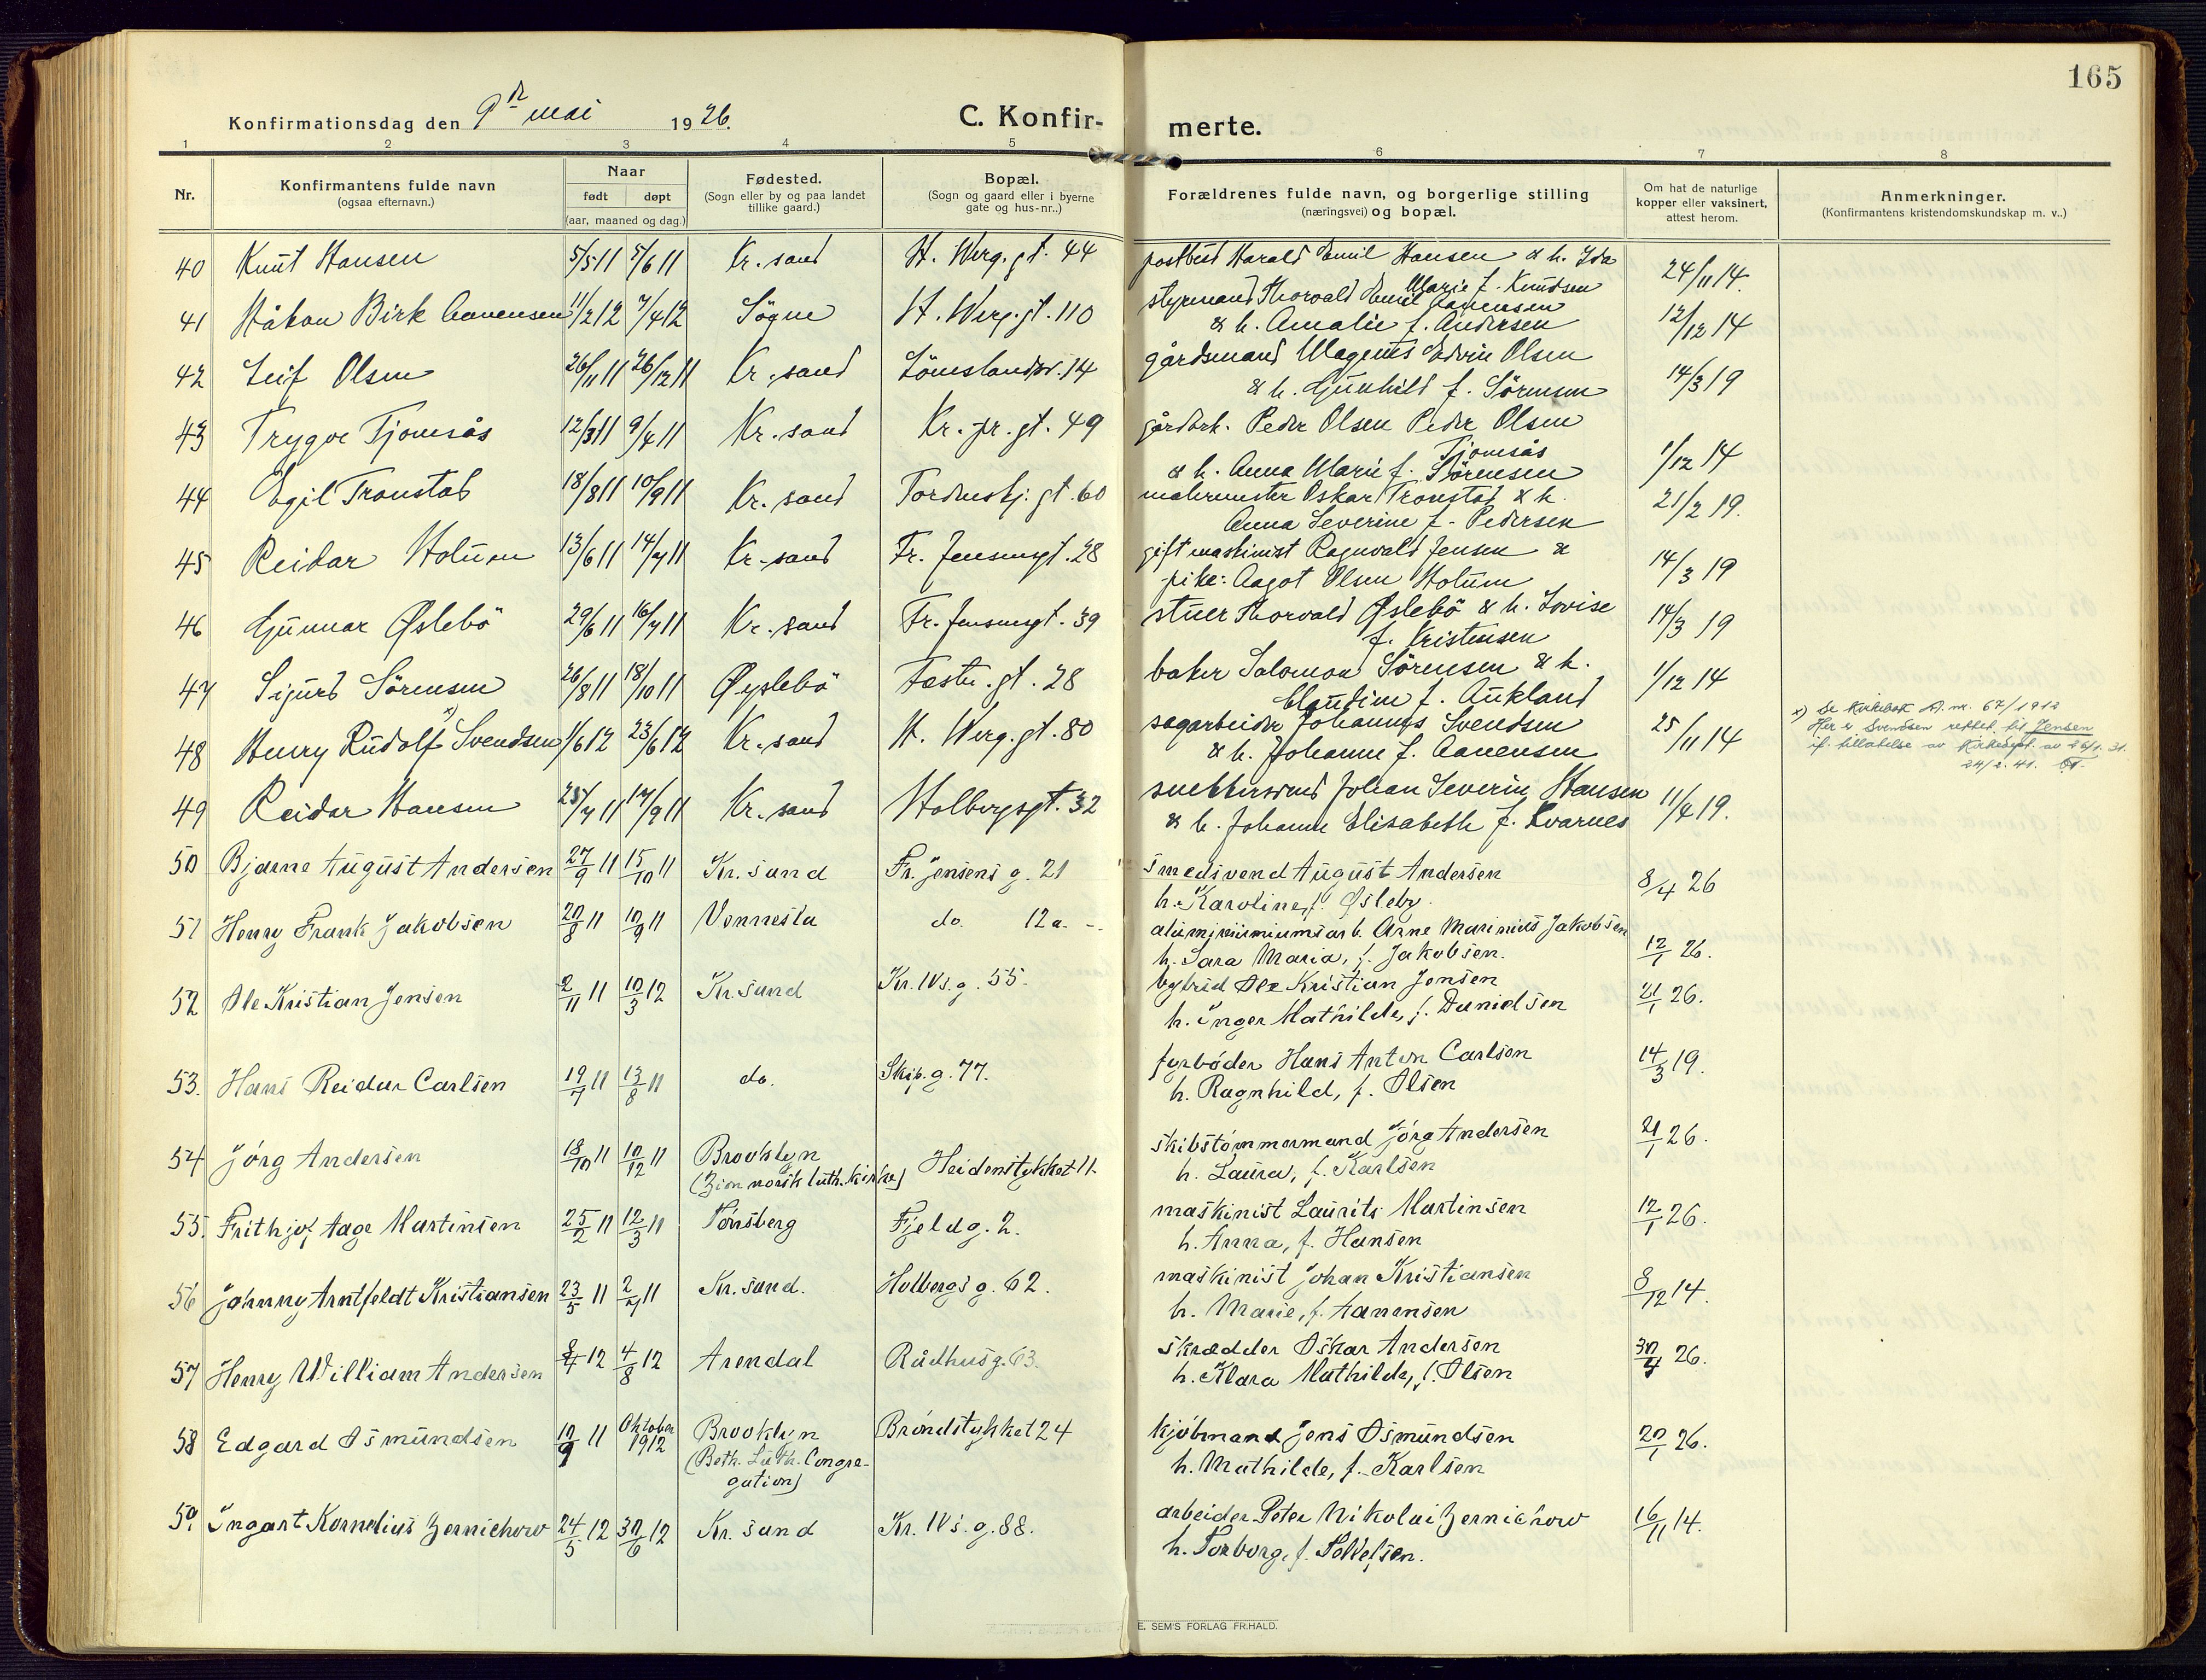 165
Konfirmationsdag den 9de mai 1926.
C. Konfir-merte.
1 2 3 4 5 6 7 8
Nr.
Konfirmantens fulde navn
(ogsaa efternavn.)
Naar
født døpt
(aar, maaned og dag.)
Fødested.
(Sogn eller by og paa landet
tillike gaard.)
Bopæl.
(Sogn og gaard eller i byerne
gate og hus-nr..)
Forældrenes fulde navn, og borgerlige stilling
(næringsvei) og bopæl.
Om hat de naturlige
kopper eller vaksinert,
attest herom.
Anmerkninger.
(Konfirmantens kristendomskundskap m. v..)
40 Knut Hansen 5/5 11 5/6 11 Kr.sand H. Werg.gt. 44 postbud Harald Emil Hansen & h. Ida
Marie f. Knudsen 24/11 14.
41 Håkon Birk Aanensen 11/2 12 7/4 12 Søgne H. Werg.gt. 110 styrmand Thorvald Emil Aanensen
& h. Amalie f. Andersen 12/12 14
42 Leif Olsen 26/11 11 26/12 11 Kr.sand Lømslandsv. 14 gårdsmand Magnus Edvin Olsen
& h. Gunhild f. Sörensen 14/3 19
43 Trygve Tjomsås 12/3 11 9/4 11 Kr.sand Kr. pr. gt. 49 gårdbr. Peder Olsen Peder Olsen
Tjomsås
& h. Anna Marie f. Sörensen 1/12 14
44 Egil Tronstad 18/8 11 10/9 11 Kr.sand Tordenskj. gt. 60 malermester Oskar Tronstad & h.
Anna Severine f. Pedersen 21/2 19.
45 Reidar Holum 13/6 11 14/7 11 Kr.sand Fr. Jensensgt. 28 gift maskinist Ragnvald Jensen &
pike: Aagot Olsen Holum 14/3 19
46 Gunnar Øslebö 29/6 11 16/7 11 Kr.sand Fr. Jensensgt. 39 stuer Thorvald Øslebö & h. Lovise
f. Kristensen 14/3 19
47 Sigurd Sörensen 26/8 11 18/10 11 Øyslebö Festn. gt. 28 baker Salomon Sörensen & h.
Claudine f. Aukland 1/12 14
48 Henry Rudolf x) Svendsen 1/6 12 23/6 12 Kr.sand H. Werg.gt. 80 sagarbeider Johannes Svendsen
& h. Johanne f. Aanensen 25/11 14
x) Se Kirkebok A. nr. 67/1912
Her er Svendsen rettet til Jensen
if. tillatelse av Kirkedept. av 26/1. 31.
24/2. 41.
49 Reidar Hansen 25/7 11 17/9 11 Kr.sand Holbergsgt. 32 snekkersvend Johan Severin Hansen
& h. Johanne Elisabeth f. Kvarnes 11/4 19.
50 Bjarne August Andersen 27/9 11 15/10 11 Kr.sand Fr. Jensens g. 21 smedsvend August Andersen
h. Karoline, f. Øsleby. 8/4 26
51 Henry Frank Jakobsen 20/8 11 10/9 11 Vennesla do. 12a. -. aluminiumsarb. Arne Marinius Jakobsen
h. Sara Maria, f. Jakobsen. 12/1 26.
52 Ole Kristian Jensen 2/11 11 10/3 12 Kr.sand Kr. IVs. g. 55. bybud Ole Kristian Jensen
h. Inger Mathilde, f. Danielsen 21/1 26.
53. Hans Reidar Carlsen 19/7 11 13/8 11 do. Skip. g. 77. fyrböder Hans Anton Carlsen
h. Ragnhild, f. Olsen 14/3 19.
54 Jörg Andersen 18/10 11 10/12 11 Brooklyn
(Zion norsk luth. Kirke) Heidenstykket 11. skibstömmermand Jörg Andersen
h. Laura, f. Karlsen 21/1 26.
55. Frithjof Aage Martinsen 25/2 11 12/3 11 Tönsberg Fjeldg. 2. maskinist Laurits Martinsen
h. Anna, f. Hansen 12/1 26.
56 Johnny Arntfeldt Kristiansen 23/5 11 2/7 11 Kr.sand. Holbergs g. 62. maskinist Johan Kristiansen
h. Marie, f. Aanensen 8/12 14.
57 Henry William Andersen 8/4 12 4/8 12 Arendal Rådhusg. 63. skrædder Oskar Andersen
h. Klara Mathilde, f. Olsen 30/4 26.
58 Edgard Osmundsen 10/9 11 Oktober
1912 Brooklyn
(Beth. Luth. Congre-
gation) Bröndstykket 24 kjöbmand Jens Osmundsen
h. Mathilde, f. Karlsen 20/1 26.
59. Ingart Kornelius Zernichow 24/5 12 30/6 12 Kr.sand Kr. IVs. g. 88. arbeider Peter Nikolai Zernichow
h. Torborg, f. Tellefsen. 16/11 14.
E. SEM'S FORLAG FR.HALD.